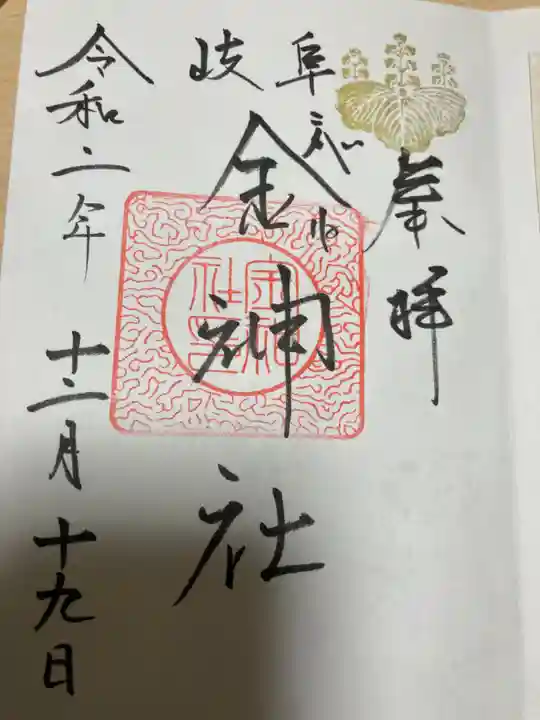 奉拝
岐阜
金神社
令和二年 十二月十九日